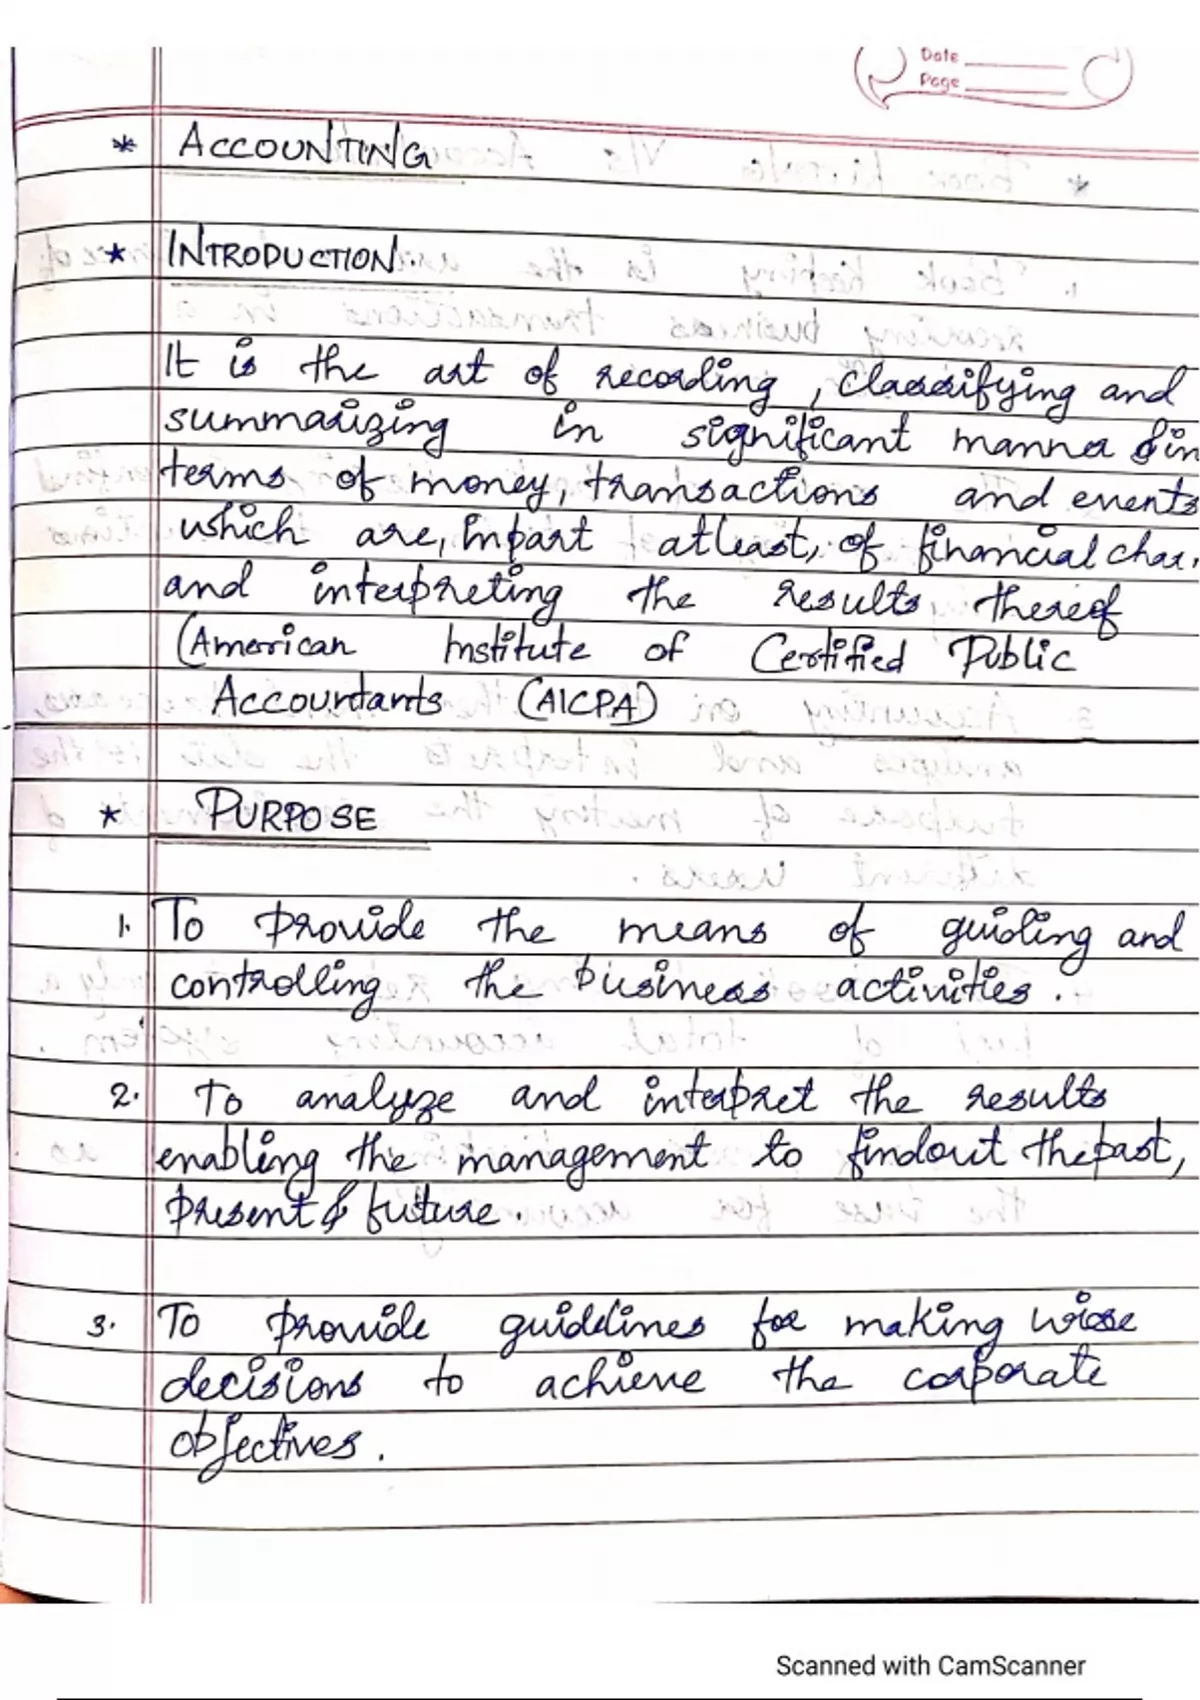 Date
Page
* ACCOUNTING
* INTRODUCTION
It is the art of recording, classifying and
summarizing in significant manner & in
terms of money, transactions and events
which are, inpart atleast, of financial char.
and interpreting the results thereof
(American Institute of Certified Public
Accountants (AICPA)
* PURPOSE
1. To provide the means of guiding and
controlling the business activities.
2. To analyze and interpret the results
enabling the management to findout the past,
present & future.
3. To provide guidelines for making wise
decisions to achieve the corporate
objectives.
Scanned with CamScanner